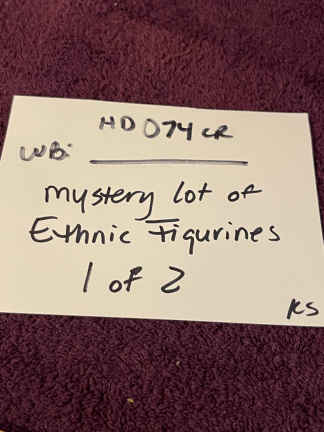 HD074 CR
WB:
mystery lot of
Ethnic Figurines
1 of 2
KS